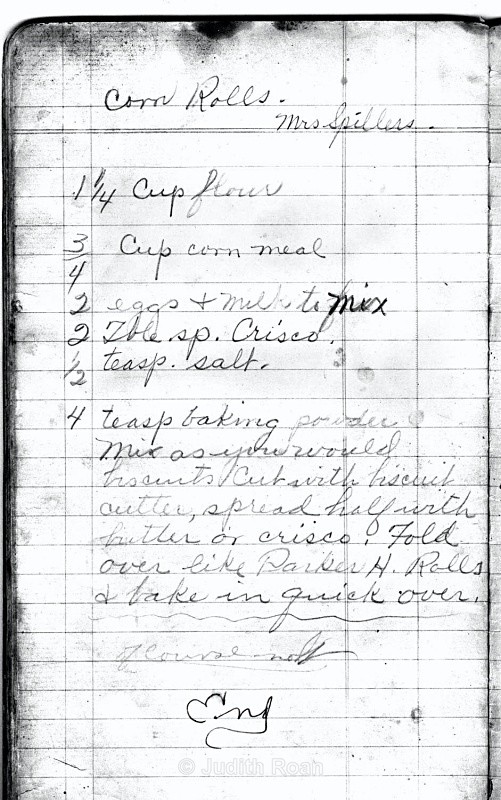 Corn Rolls.
Mrs Spillers.
1 1/4 Cup flour
3/4 Cup corn meal
2 eggs & milk to mix
2 Tble sp. Crisco.
1/2 teasp. salt.
4 teasp baking powder
Mix as you would
biscuits Cut with biscuit
cutter, spread half with
butter or crisco. Fold
over like Parker H. Rolls
& bake in quick over.
of course not
End
© Judith Roan